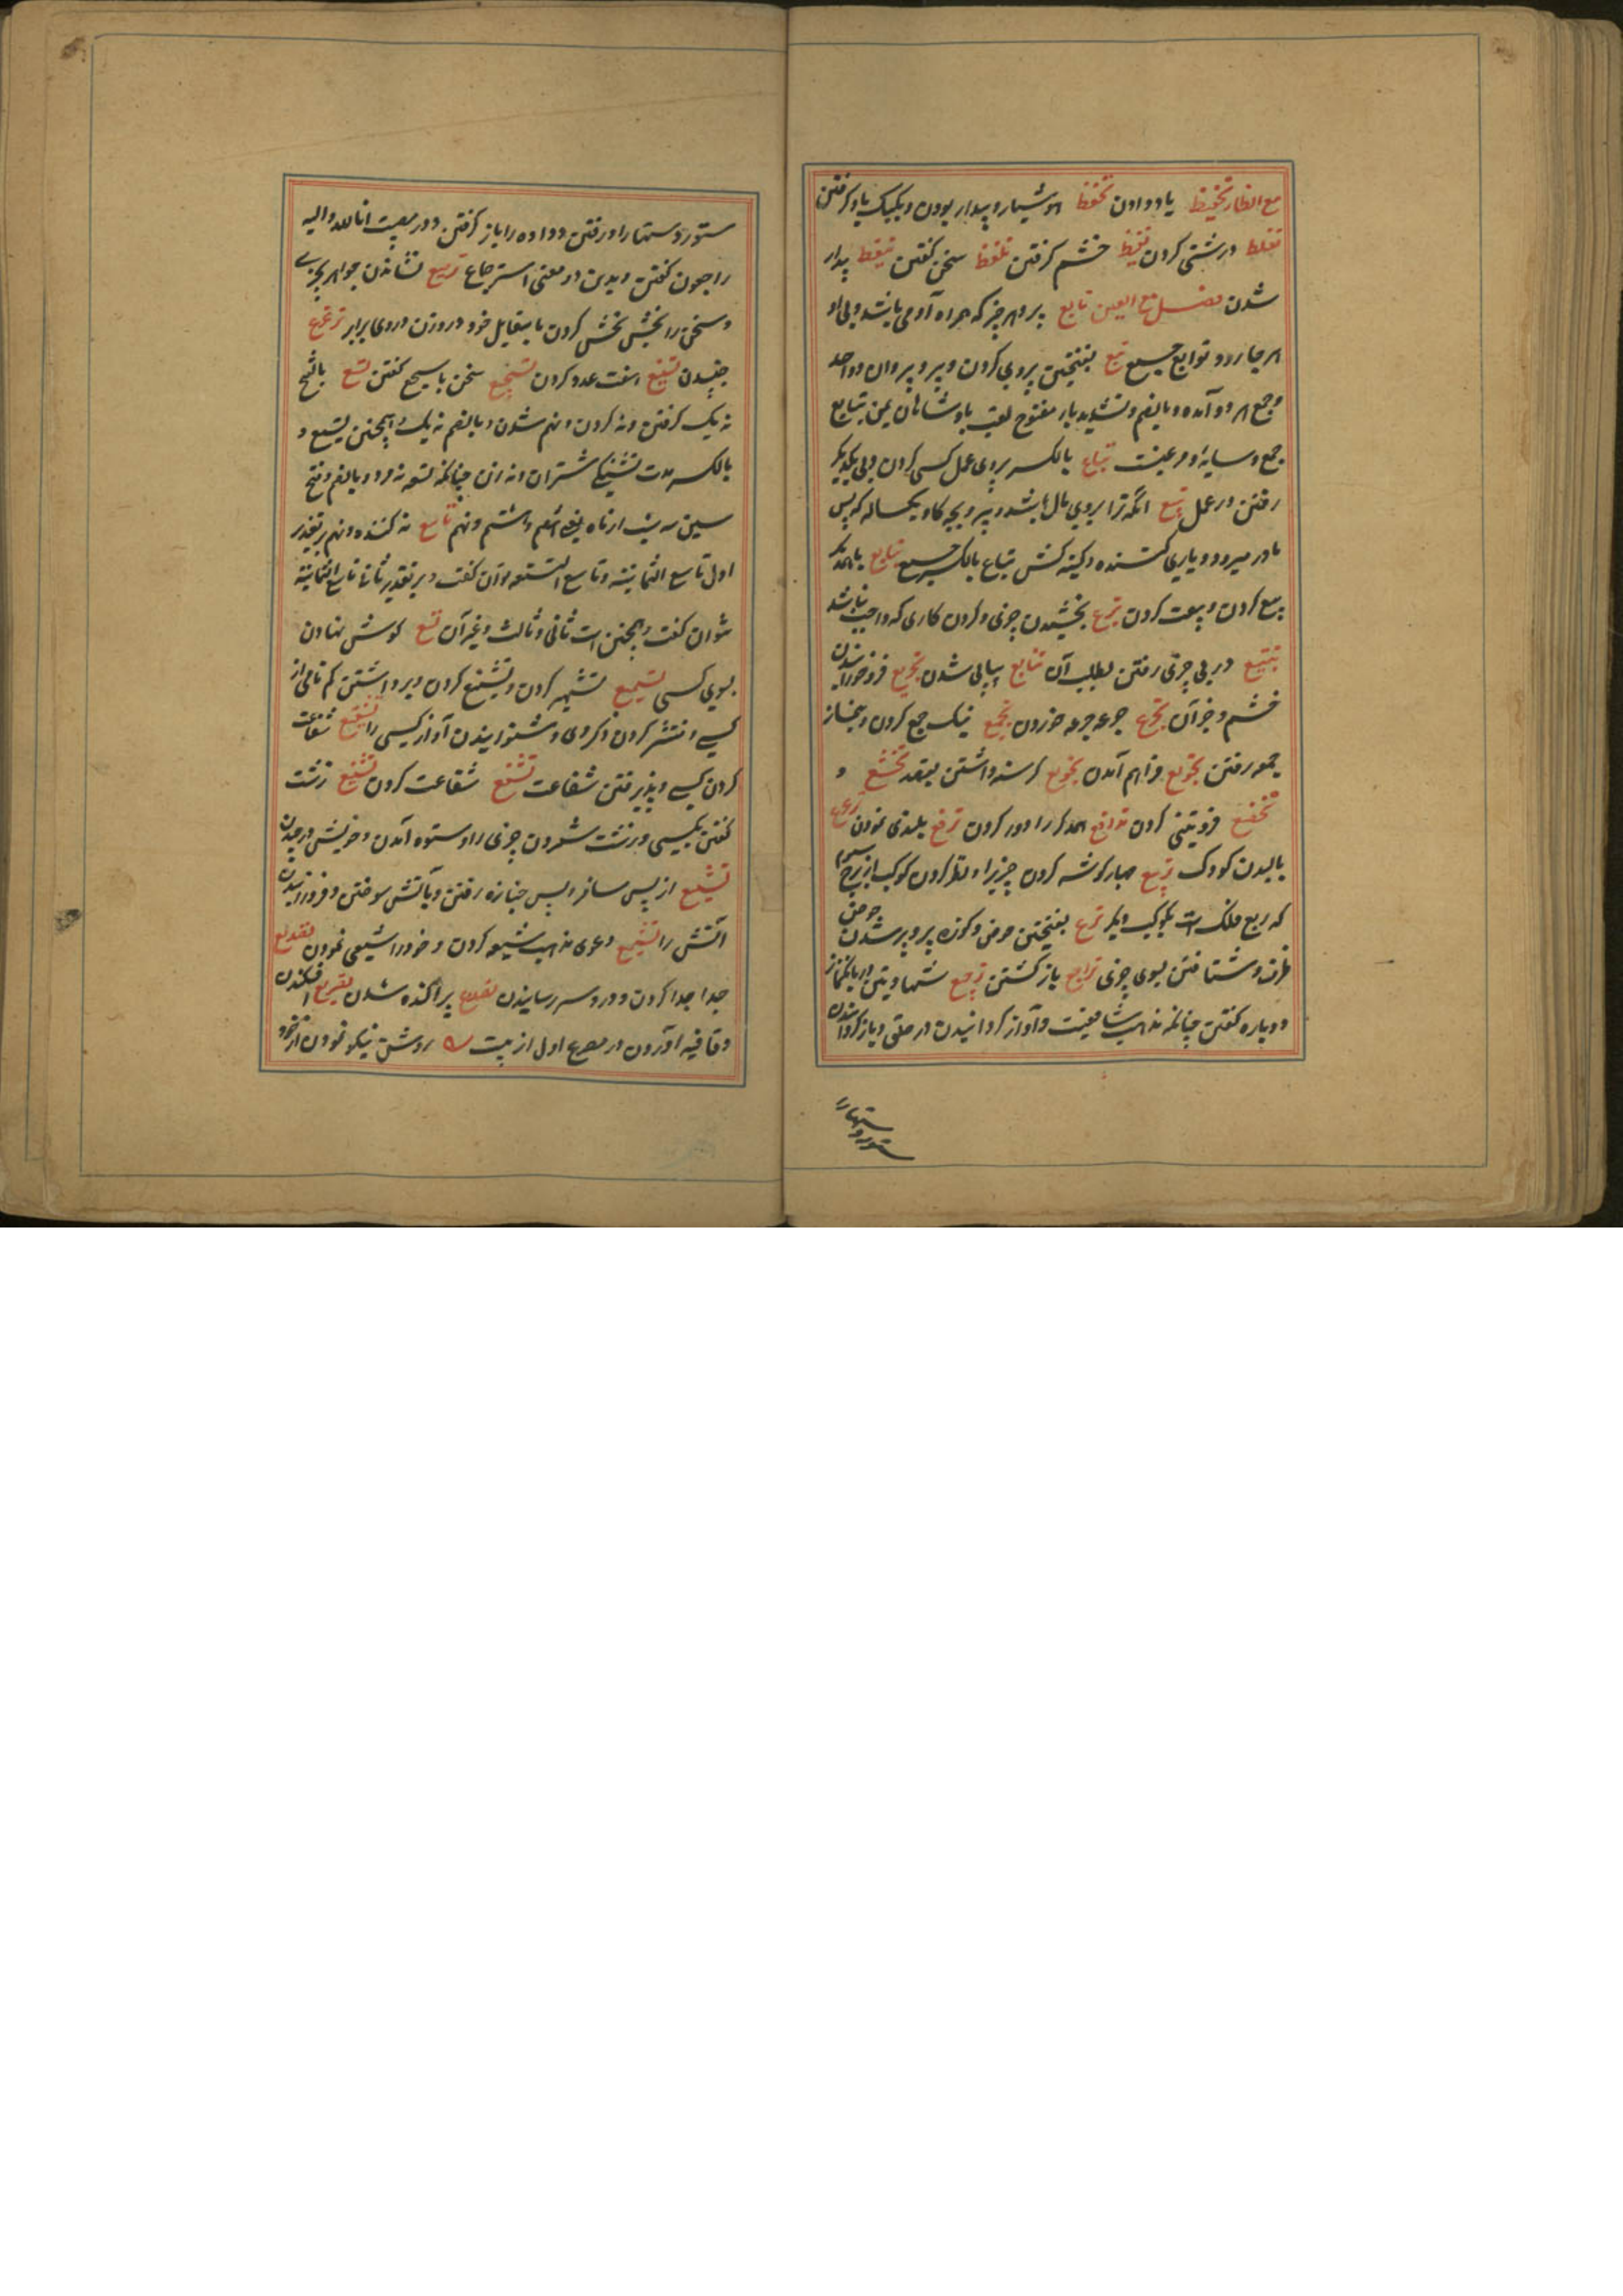 مع الظار تحفیظ یاد دادن تحفظ هوشیار و بیدار بودن و یکیک یاد کرفتن
تغلظ درشتی کردن تغیظ خشم کرفتن تلفظ سخن کفتن تیقظ بیدار
شدن فصل مع العین تابع پیرو هر چیز که همراه آدمی باشد و پی او
هر جا رود توابع جمع تبع بفتحتین پیروی کردن و پیرو پیروان و واحد
و جمع هر دو آمده و بالضم و تشدید باء مفتوح لقب پادشاهان یمن تبایع
جمع و سایه و مرغیست تباع بالکسر پیروی عمل کسی کردن و پی یکدیکر
رفتن در عمل تبیع انکه ترا بروی مال باشد و پیرو بچه کاو یکساله که پس
مادر میرود و یاری کننده و کینه کش تباع بالکسر جمع تبایع باهمدیکر
بیع کردن و بیعت کردن تبرع بخشیدن چیزی و کردن کاری که واجب نباشد
تتبع در پی چیزی رفتن بطلب آن تتابع پیاپی شدن تجریع فرو خورانیدن
خشم و جز آن تجرع جرعه جرعه خوردن تجمیع نیک جمع کردن و بنماز
جمعه رفتن تجمع فراهم آمدن تجویع کرسنه داشتن بقصد تخشع و
تخضع فروتنی کردن تدافع همدیکر را دور کردن ترفع بلندی نمودن ترعرع
بالیدن کودک تربیع چهار کوشه کردن چیزیرا و نظر کردن کوکب از برج سیوم
که ربع فلک است بکوکب دیکر ترع بفتحتین حوض و کوزه پر و پر شدن حوض
ظرف و شتافتن بسوی چیزی تراجع باز کشتن ترجیع شهادتین در بانک نماز
دوباره کفتن چنانکه مذهب شافعیست و آواز کردانیدن در حلق و باز کردانیدن
ستور و ستهارا
ستور و ستهارا در رفتن و داده را باز کرفتن و در مصیبت انا لله و الیه
راجعون کفتن و بدین دو معنی استرجاع ترصیع نشاندن جواهر بچیزی
و سخن را بخش بخش کردن با مقابل خود در وزن و روی برابر ترعرع
جنبیدن تسبیع هفت عدد کردن تسجیع سخن با سجع کفتن تسع بالفتح
نه یک کرفتن و نه کردن و نهم شدن و بالضم نه یک و همچنین تسیع و
بالکسر مدت تشنکی شتران و نه زن چنانکه تسعه نه مرد و بالضم و فتح
سین سه شب از ماه یعنی هفتم و هشتم و نهم تاسع نه کننده و نهم بر تقدیر
اول تاسع الثمانیة و تاسع التسعه توان کفت و بر تقدیر ثانی تاسع الثمانیة
نتوان کفت و همچنین است ثانی و ثالث و غیر آن تسمع کوش نهادن
بسوی کسی تسمیع تشهیر کردن و تشنیع کردن و برداشتن کم نامی از
کسی و منتشر کردن ذکر وی و شنوانیدن آواز کسی را تشفیع شفاعت
کردن کسی و پذیرفتن شفاعت تشفع شفاعت کردن تشنیع زشت
کفتن بکسی و زشت شمردن چیزی را و ستوه آمدن و خویش در چیدن
تشییع از پس مسافر و پس جنازه رفتن و بآتش سوختن و فروزانیدن
آتش را تشیع دعوی مذهب شیعه کردن و خود را شیعی نمودن تصدیع
جدا جدا کردن و درد سر رسانیدن تصدع پراکنده شدن تصریع افکندن
و قافیه آوردن در مصرع اول از بیت روش نیکو نمودن از خود